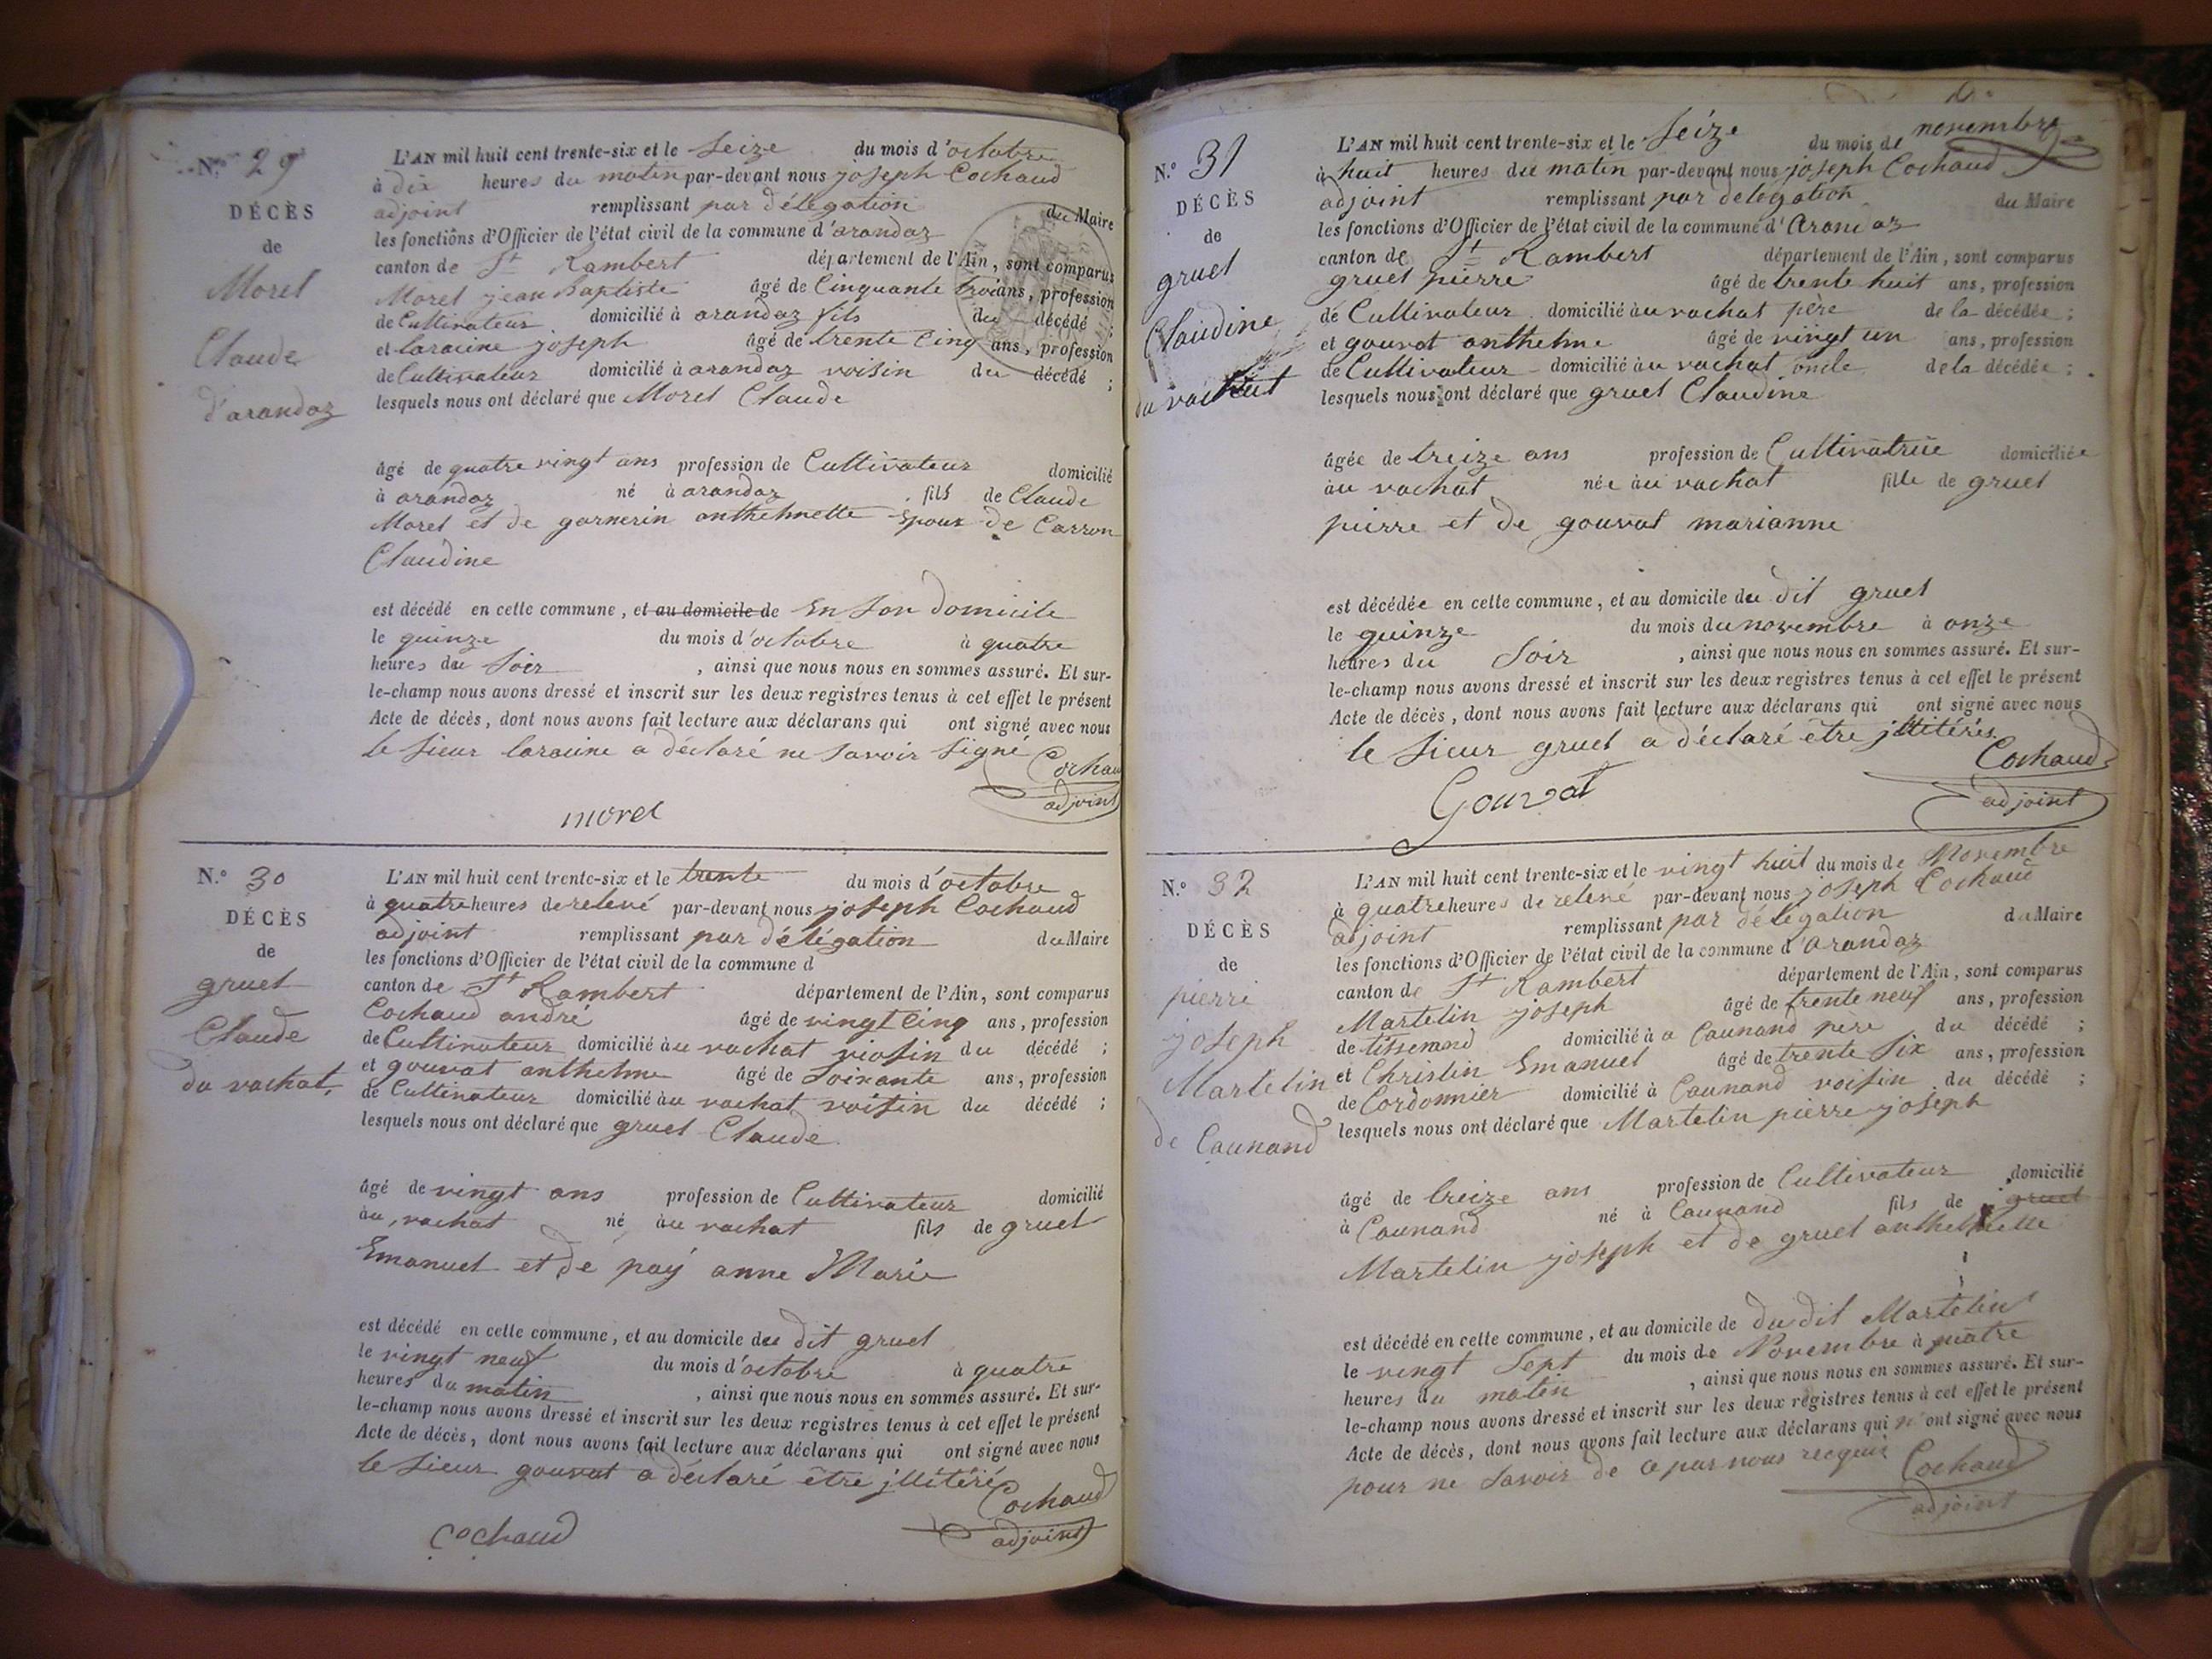 N.° 29
DÉCÈS
de
Morel
Claude
d'arandaz
L'AN mil huit cent trente-six et le Seize du mois d'octobre
à dix heures du matin par-devant nous joseph Cochaud
adjoint remplissant par délégation du Maire
les fonctions d'Officier de l'état civil de la commune d'arandaz
canton de St Rambert département de l'Ain, sont comparus
Morel jean Baptiste âgé de Cinquante trois ans, profession
de Cultivateur domicilié à arandaz fils du décédé ;
et laracine joseph âgé de trente Cinq ans, profession
de Cultivateur domicilié à arandaz voisin du décédé ;
lesquels nous ont déclaré que Morel Claude
âgé de quatre vingt ans profession de Cultivateur domicilié
à arandaz né à arandaz fils de Claude
Morel et de garnerin anthelmette Epoux de Carron
Claudine
est décédé en cette commune, et au domicile de En Son domicile
le quinze du mois d'octobre à quatre
heures du Soir , ainsi que nous nous en sommes assuré. Et sur-
le-champ nous avons dressé et inscrit sur les deux registres tenus à cet effet le présent
Acte de décès, dont nous avons fait lecture aux déclarans qui ont signé avec nous
le Sieur laracine a déclaré ne Savoir Signé
Cochaud
adjoint
morel
N.° 30
DÉCÈS
de
gruel
Claude
du vachat
L'AN mil huit cent trente-six et le trente du mois d'octobre
à quatre heures de relevé par-devant nous joseph Cochaud
adjoint remplissant par délégation du Maire
les fonctions d'Officier de l'état civil de la commune d
canton de St Rambert département de l'Ain, sont comparus
Cochaud andré âgé de vingt Cinq ans, profession
de Cultivateur domicilié àu vachat viosin du décédé ;
et gouvat anthelme âgé de Soixante ans, profession
de Cultivateur domicilié àu vachat voisin du décédé ;
lesquels nous ont déclaré que gruel Claude
âgé de vingt ans profession de Cultivateur domicilié
àu vachat né àu vachat fils de gruel
Emanuel et de pay anne Marie
est décédé en cette commune, et au domicile du dit gruel
le vingt neuf du mois d'octobre à quatre
heures du matin , ainsi que nous nous en sommes assuré. Et sur-
le-champ nous avons dressé et inscrit sur les deux registres tenus à cet effet le présent
Acte de décès, dont nous avons fait lecture aux déclarans qui ont signé avec nous
le Sieur gouvat a déclaré être jllitéré
Cochaud
adjoint
Cochaud
N.° 31
DÉCÈS
de
gruel
Claudine
du vachat
L'AN mil huit cent trente-six et le Seize du mois de novembre
à huit heures du matin par-devant nous joseph Cochaud
adjoint remplissant par délégation du Maire
les fonctions d'Officier de l'état civil de la commune d'Arandaz
canton de St Rambert département de l'Ain, sont comparus
gruel pierre âgé de trente huit ans, profession
de Cultivateur domicilié àu vachat père de la décédée ;
et gouvat anthelme âgé de vingt un ans, profession
de Cultivateur domicilié àu vachat oncle de la décédée ;
lesquels nous ont déclaré que gruel Claudine
âgée de treize ans profession de Cultivatrice domiciliée
àu vachat née àu vachat fille de gruel
pierre et de gouvat marianne
est décédée en cette commune, et au domicile du dit gruel
le quinze du mois du novembre à onze
heures du Soir , ainsi que nous nous en sommes assuré. Et sur-
le-champ nous avons dressé et inscrit sur les deux registres tenus à cet effet le présent
Acte de décès, dont nous avons fait lecture aux déclarans qui ont signé avec nous
le Sieur gruel a déclaré être jllitérés
Cochaud
adjoint
Gouvat
N.° 32
DÉCÈS
de
pierre
joseph
Martelin
de Caunand
L'AN mil huit cent trente-six et le vingt huit du mois de Novembre
à quatre heures de relevé par-devant nous joseph Cochaud
adjoint remplissant par délégation du Maire
les fonctions d'Officier de l'état civil de la commune d'arandaz
canton de St Rambert département de l'Ain, sont comparus
Martelin joseph âgé de trente neuf ans, profession
de tisserand domicilié à a Caunand père du décédé ;
et Christin Emanuel âgé de trente Six ans, profession
de Cordonnier domicilié à Caunand voisin du décédé ;
lesquels nous ont déclaré que Martelin pierre joseph
âgé de treize ans profession de Cultivateur domicilié
à Caunand né à Caunand fils de gruel
Martelin joseph et de gruel anthelmette
est décédé en cette commune, et au domicile de du dit Martelin
le vingt Sept du mois de Novembre à quatre
heures du matin , ainsi que nous nous en sommes assuré. Et sur-
le-champ nous avons dressé et inscrit sur les deux registres tenus à cet effet le présent
Acte de décès, dont nous avons fait lecture aux déclarans qui n'ont signé avec nous
pour ne Savoir de ce par nous recquis
Cochaud
adjoint